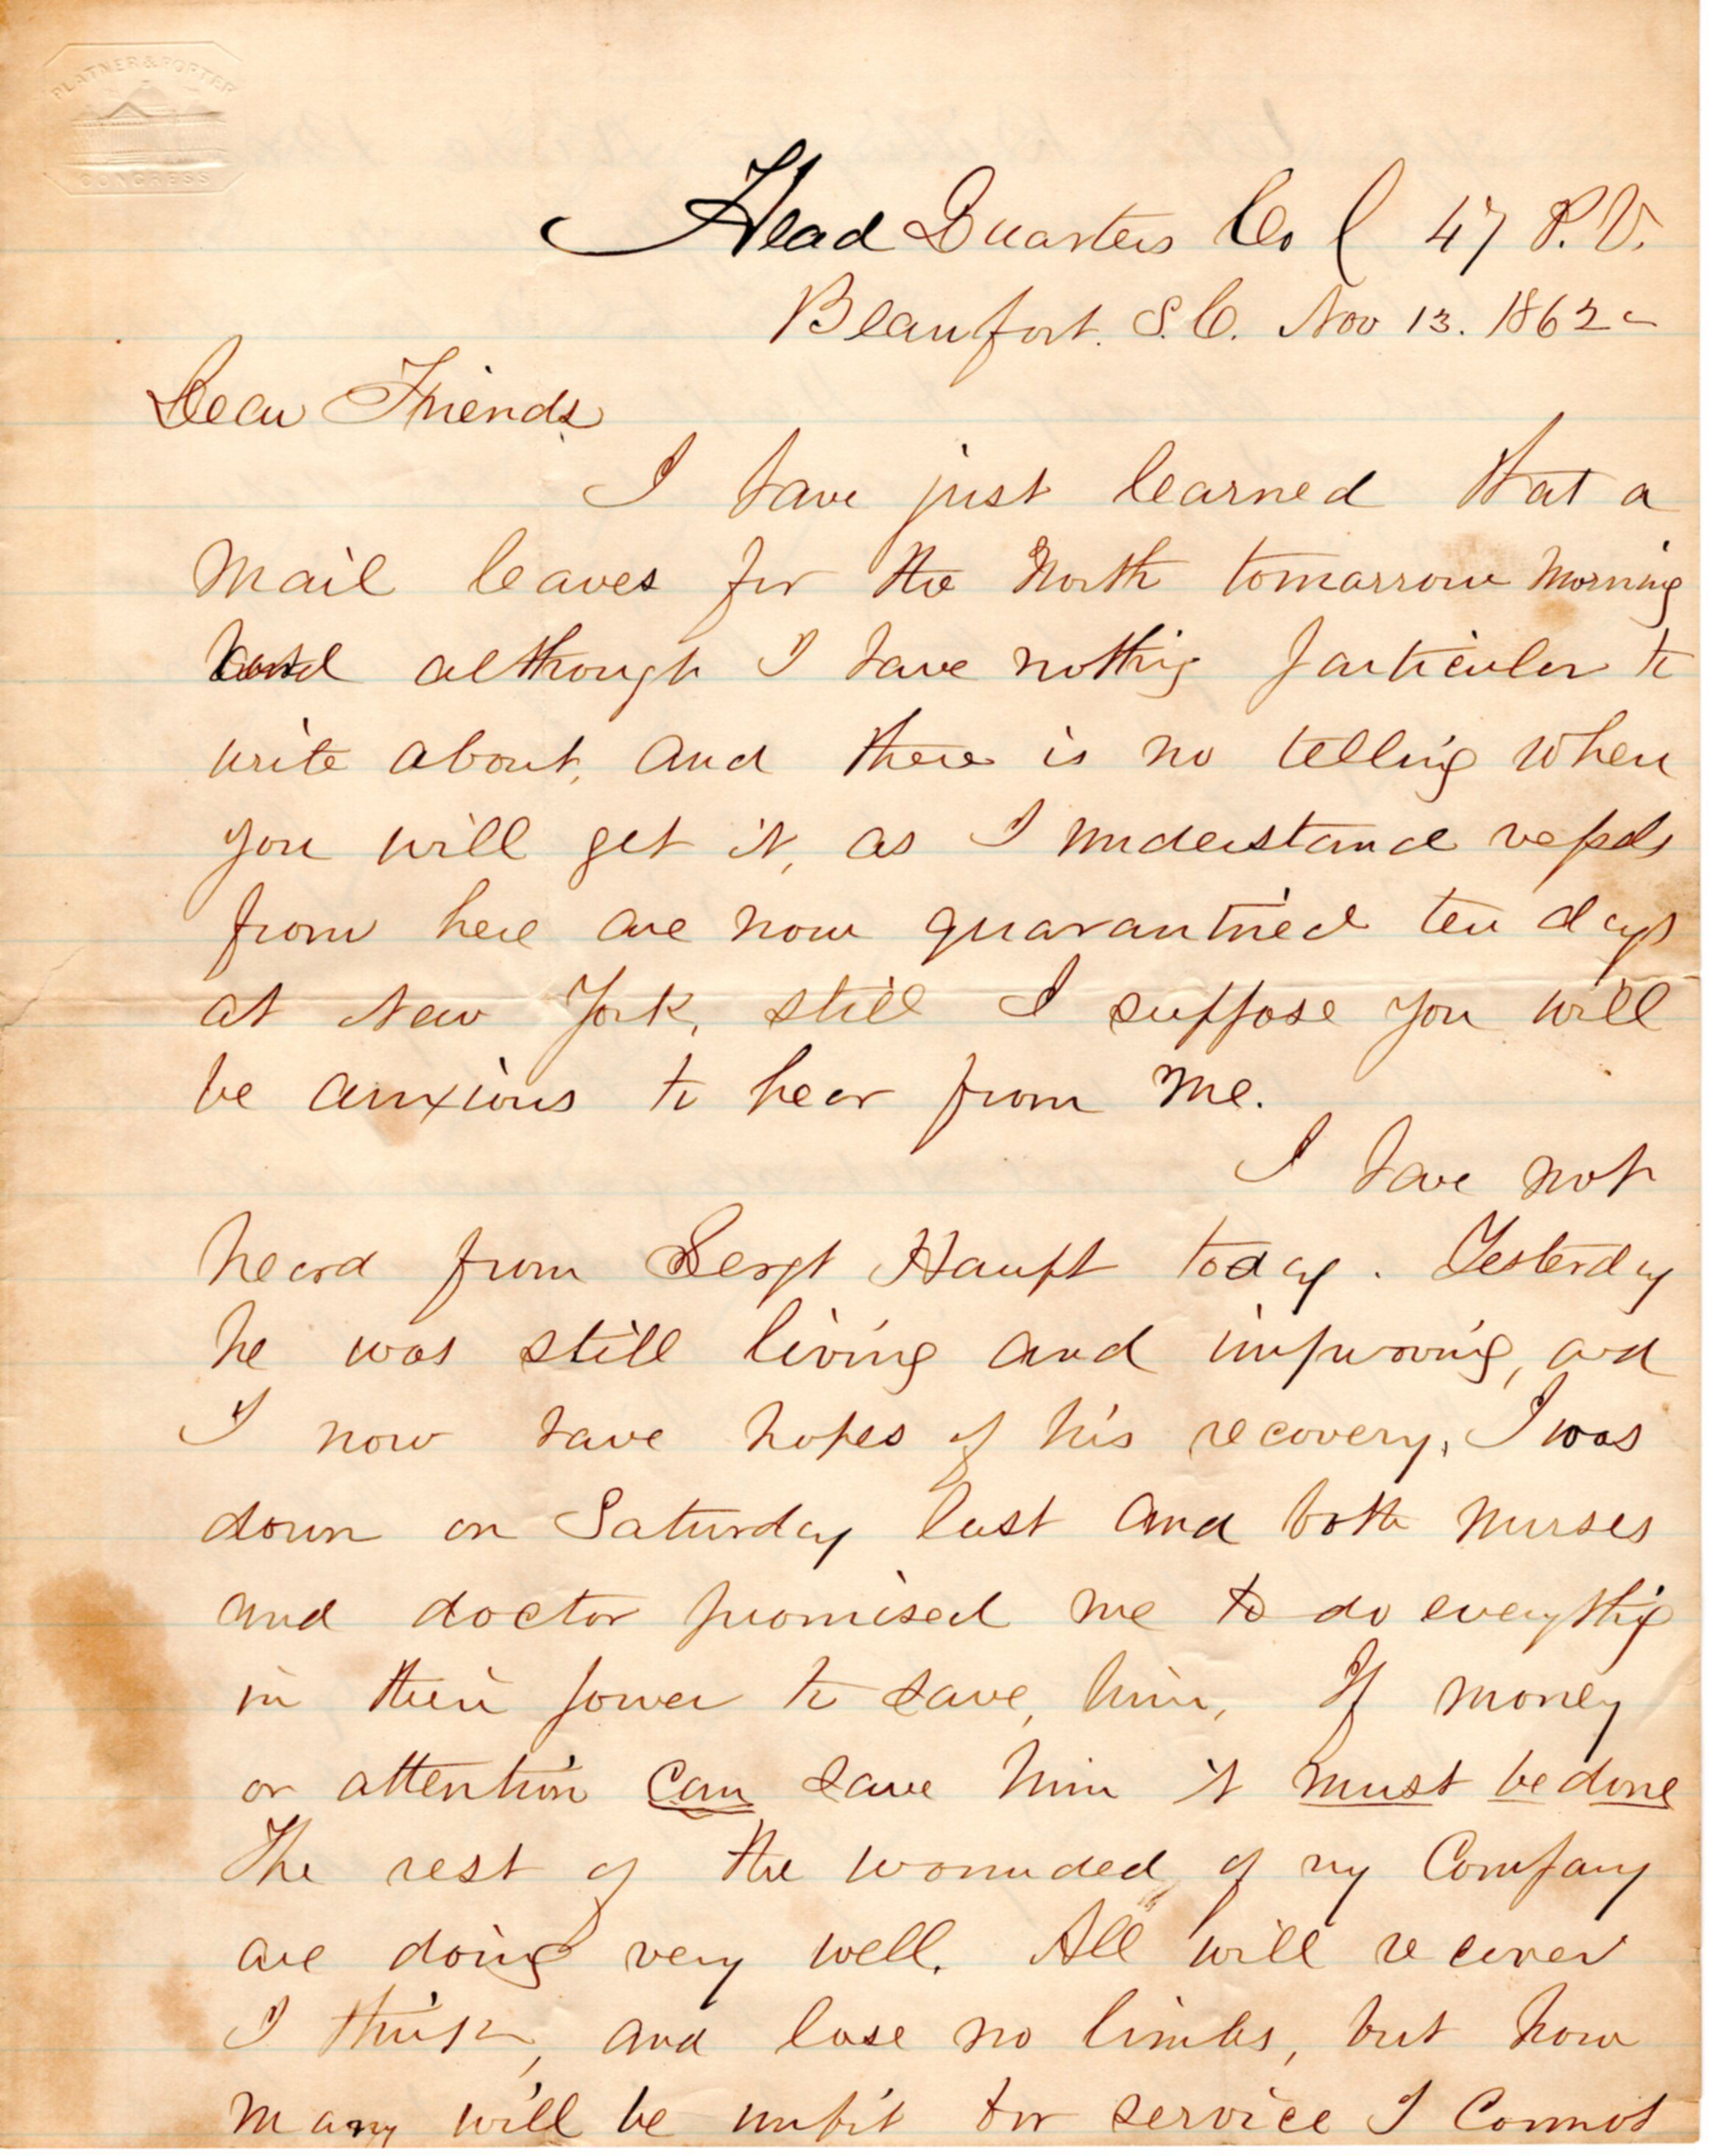 PLATNER & PORTER
CONGRESS
Head Quarters Co C 47 P.V.
Beaufort. S.C. Nov 13. 1862
Dear Friends
I have just learned that a
mail leaves for the North tomarrow morning
and although I have nothing particular to
write about, and there is no telling when
you will get it, as I understand vessels
from here are now quarantined ten days
at New York, still I suppose you will
be anxious to hear from me.
I have not
heard from Sergt Haupt today. Yesterday
he was still living and improving, and
I now have hopes of his recovery, I was
down on Saturday last and both nurses
and doctor promised me to do everything
in their power to save, him, If money
or attention can save him it must be done
The rest of the wounded of my Company
are doing very well. All will recover
I think, and lose no limbs, but how
many will be unfit for service I cannot